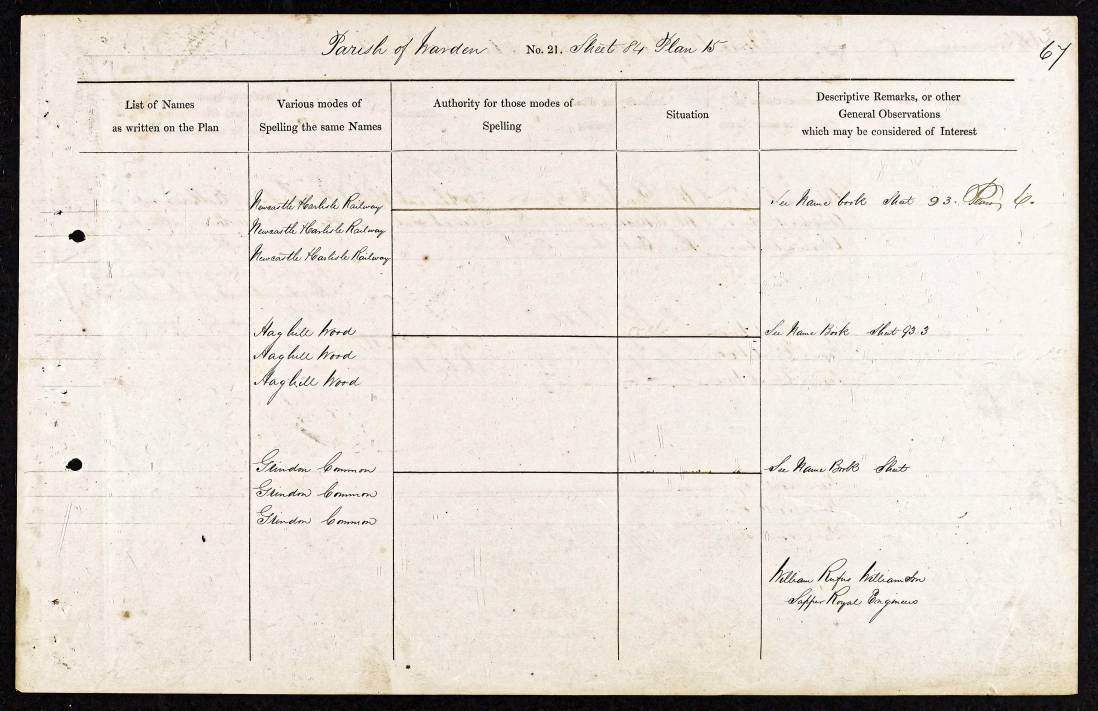 Parish of Warden No. 21. Sheet 84 Plan 15
67
List of Names
as written on the Plan
Various modes of
Spelling the same Names
Authority for those modes of
Spelling
Situation
Descriptive Remarks, or other
General Observations
which may be considered of Interest
Newcastle & Carlisle Railway
See Name book Sheet 93. 6.
Newcastle & Carlisle Railway
Newcastle & Carlisle Railway
Haghill Wood
See Name Book Sheet 93 3
Haghill Wood
Haghill Wood
Grindon Common
See Name Book Sheet
Grindon Common
Grindon Common
William Rufus Williamson
Sapper Royal Engineers